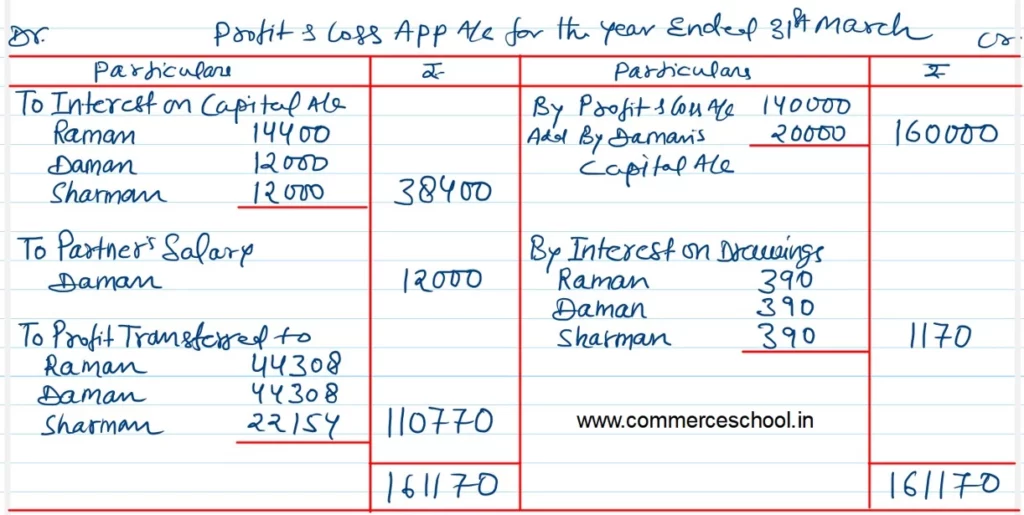 Dr. Profit & Loss App A/c for the year Ended 31st March Cr.
Particulars ₹ Particulars ₹
To Interest on Capital A/c
Raman 14400
Daman 12000
Sharman 12000 38400
To Partner's Salary
Daman 12000
To Profit Transferred to
Raman 44308
Daman 44308
Sharman 22154 110770
161170
By Profit & Loss A/c 140000
Add By Daman's 20000 160000
Capital A/c
By Interest on Drawings
Raman 390
Daman 390
Sharman 390 1170
www.commerceschool.in
161170